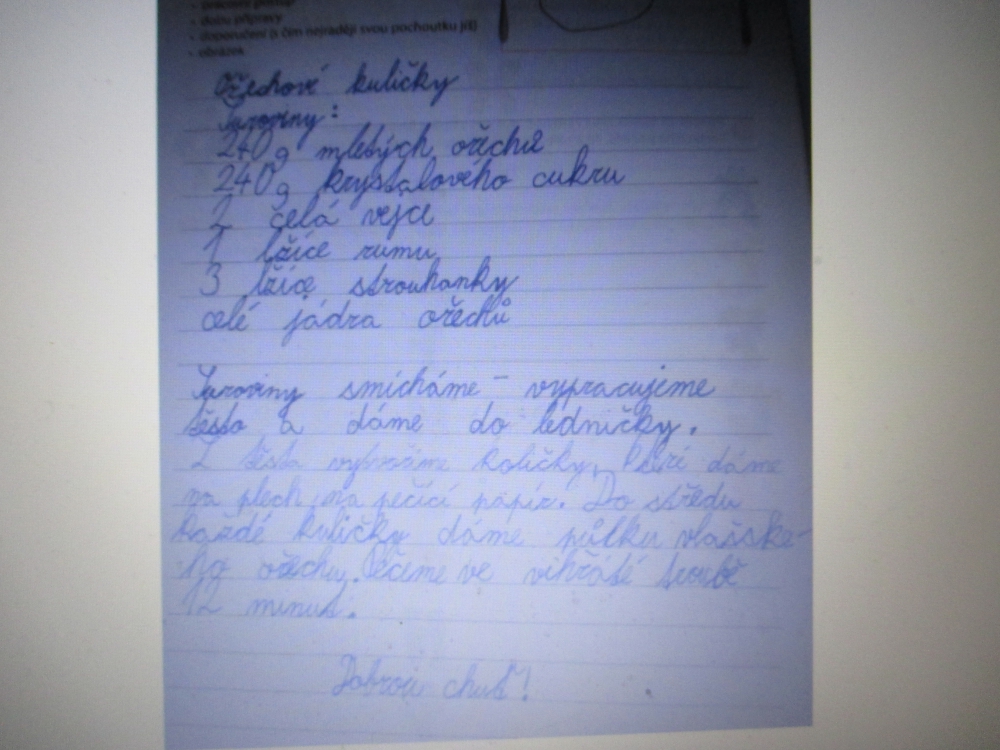 • dobu přípravy
• doporučení (s čím nejraději svou pochoutku jíš)
• obrázek
Ořechové kuličky
Suroviny:
240g mletých ořechů
240g krystalového cukru
2 čelá vejce
1 lžíce rumu
3 lžíce strouhanky
celé jádra ořechů
Suroviny smícháme - vypracujeme
těsto a dáme do ledničky.
Z těsta vytvoříme količky, které dáme
na plech, na pečící papír. Do středu
každé kuličky dáme půlku vlašské-
ho ořechu. Pečeme ve vihřáté troubě
12 minut.
Dobrou chuť!